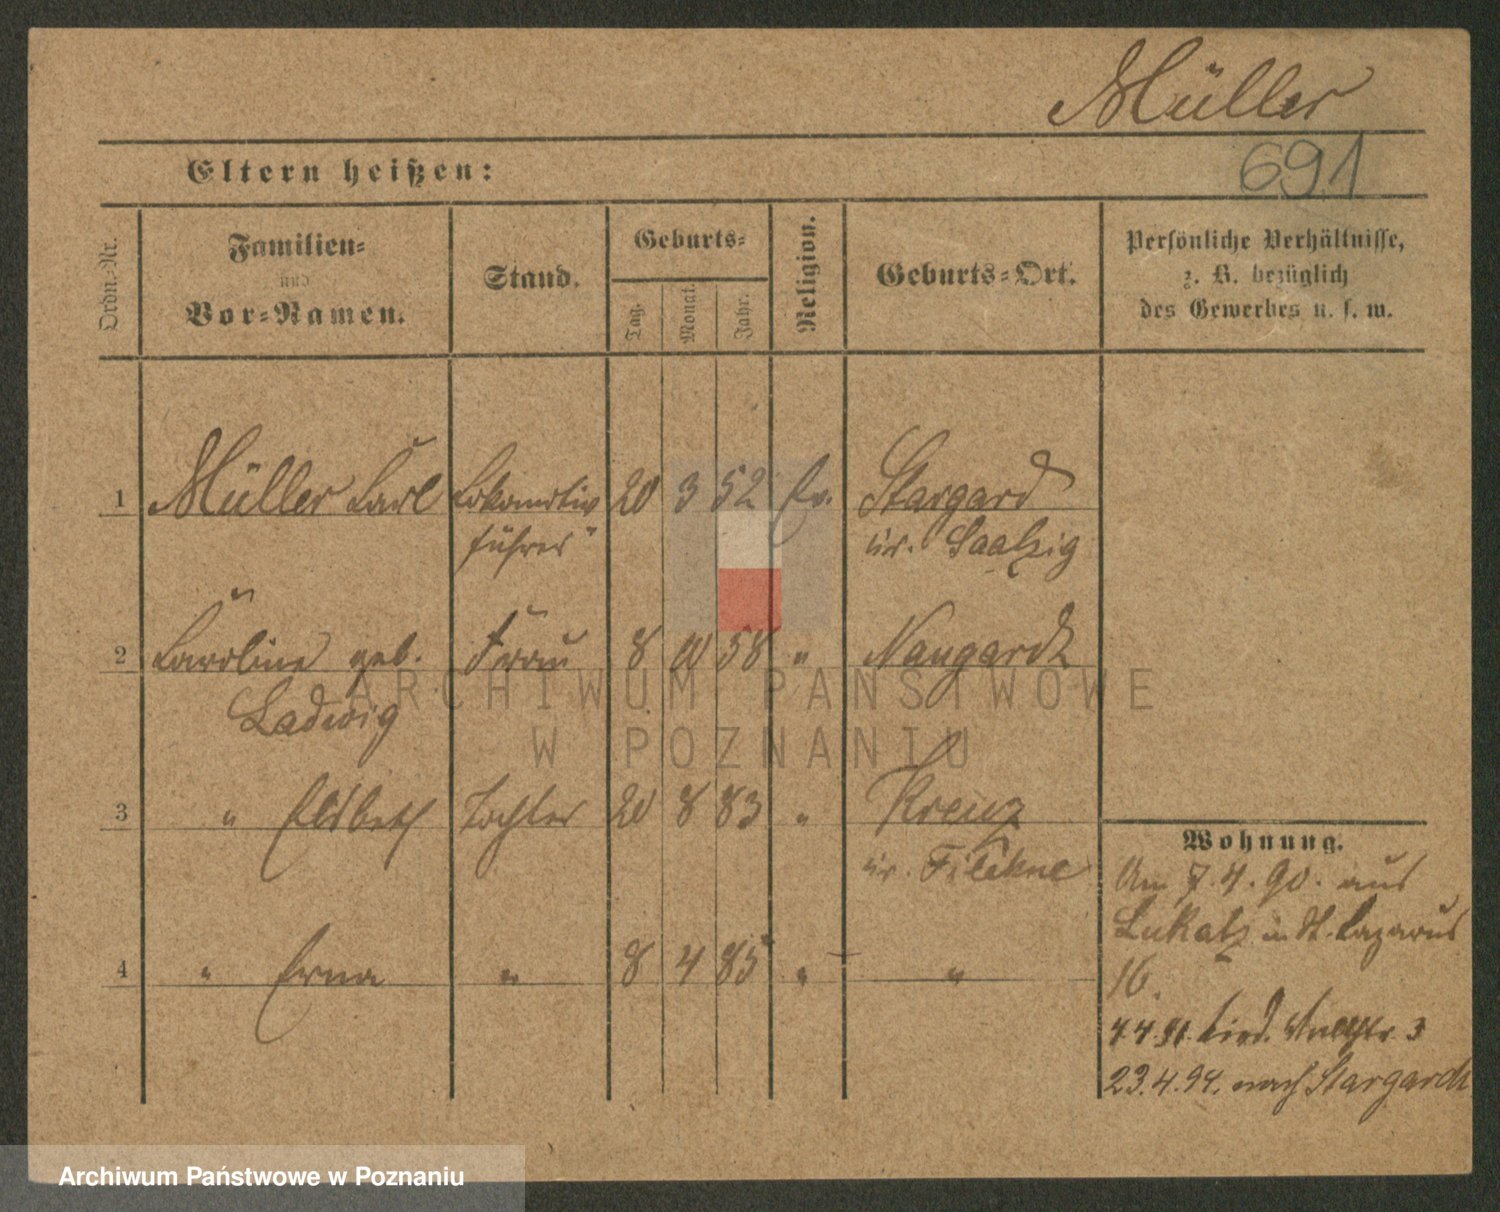 Müller
Eltern heißen:
691
Ordn.-Nr.
Familien-
und
Vor-Namen.
Stand.
Geburts-
Tag.
Monat.
Jahr.
Religion.
Geburts-Ort.
Persönliche Verhältnisse,
z. B. bezüglich
des Gewerbes u. s. w.
1 Müller Carl Lokomotiv 20 3 52 Ev. Stargard
führer Kr. Saatzig
2 Caroline geb. Frau 8 10 58 " Naugardt
Ladwig
3 " Elsbeth Tochter 20 8 83 " Kreuz
Kr. Filehne
4 " Erna " 8 4 85 " "
Wohnung.
Am 7.4.90. aus
Lukatz in St. Lazarus
16.
3
23.4.94. nach Stargardt
ARCHIWUM PAŃSTWOWE
W POZNANIU
Archiwum Państwowe w Poznaniu